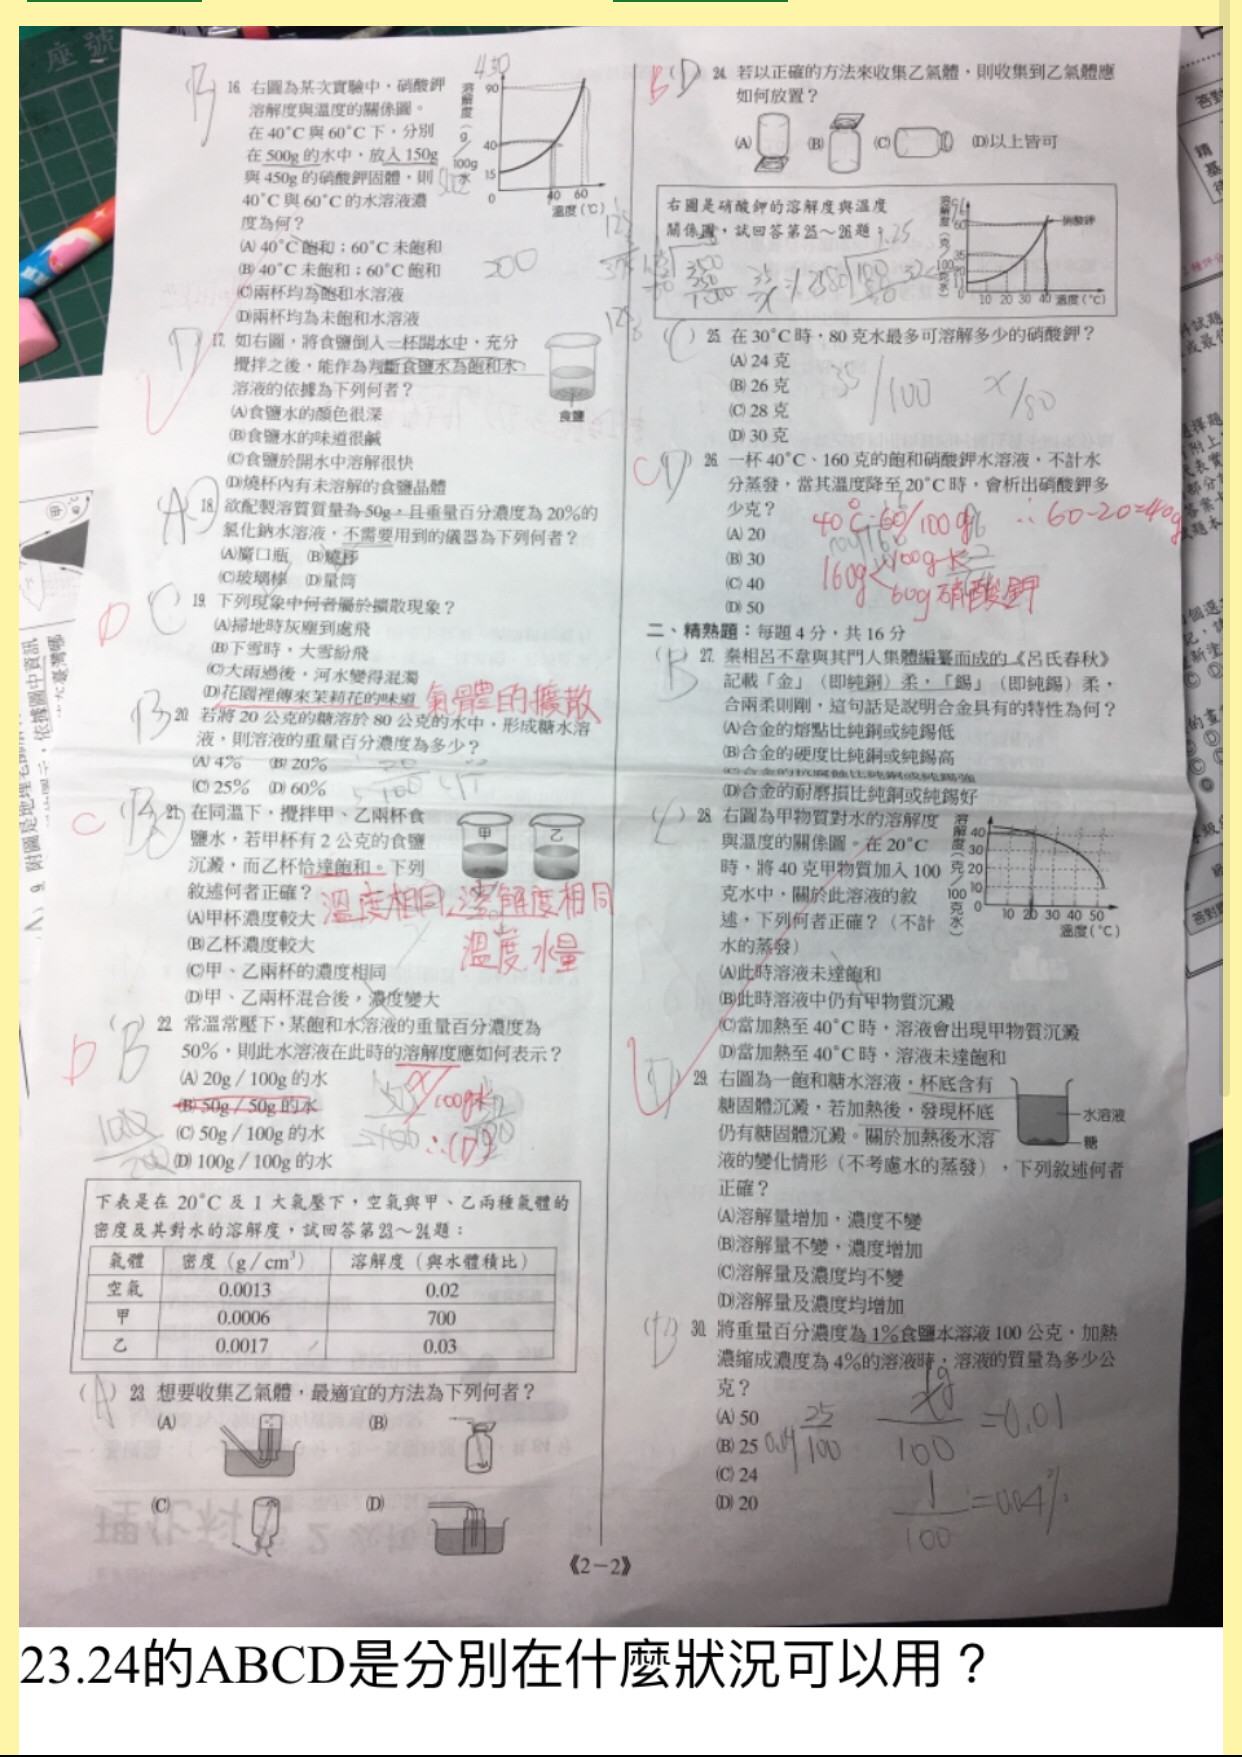 座號
16. 右圖為某次實驗中，硝酸鉀
溶解度與溫度的關係圖。
在 40°C 與 60°C 下，分別
在 500g 的水中，放入 150g
與 450g 的硝酸鉀固體，則
40°C 與 60°C 的水溶液濃
度為何？
(A) 40°C 飽和；60°C 未飽和
(B) 40°C 未飽和；60°C 飽和
(C)兩杯均為飽和水溶液
(D)兩杯均為未飽和水溶液
溶解度（g／100g水）
90
40
15
0
40 60
溫度(℃)
450
200
17. 如右圖，將食鹽倒入一杯開水中，充分
攪拌之後，能作為判斷食鹽水為飽和水
溶液的依據為下列何者？
(A)食鹽水的顏色很深
(B)食鹽水的味道很鹹
(C)食鹽於開水中溶解很快
(D)燒杯內有未溶解的食鹽晶體
食鹽
18. 欲配製溶質質量為 50g，且重量百分濃度為 20%的
氯化鈉水溶液，不需要用到的儀器為下列何者？
(A)廣口瓶 (B)燒杯
(C)玻璃棒 (D)量筒
19. 下列現象中何者屬於擴散現象？
(A)掃地時灰塵到處飛
(B)下雪時，大雪紛飛
(C)大雨過後，河水變得混濁
(D)花園裡傳來茉莉花的味道
氣體的擴散
20. 若將 20 公克的糖溶於 80 公克的水中，形成糖水溶
液，則溶液的重量百分濃度為多少？
(A) 4% (B) 20%
(C) 25% (D) 60%
21. 在同溫下，攪拌甲、乙兩杯食
鹽水，若甲杯有 2 公克的食鹽
沉澱，而乙杯恰達飽和。下列
敘述何者正確？
(A)甲杯濃度較大
(B)乙杯濃度較大
(C)甲、乙兩杯的濃度相同
(D)甲、乙兩杯混合後，濃度變大
甲 乙
溫度相同，溶解度相同
溫度 水量
22. 常溫常壓下，某飽和水溶液的重量百分濃度為
50%，則此水溶液在此時的溶解度應如何表示？
(A) 20g／100g 的水
(B) 50g／50g 的水
(C) 50g／100g 的水
(D) 100g／100g 的水
x/100g水
∴(D)
下表是在 20°C 及 1 大氣壓下，空氣與甲、乙兩種氣體的
密度及其對水的溶解度，試回答第23～24題：
氣體 密度（g／cm³） 溶解度（與水體積比）
空氣 0.0013 0.02
甲 0.0006 700
乙 0.0017 0.03
23. 想要收集乙氣體，最適宜的方法為下列何者？
(A) (B)
(C) (D)
24. 若以正確的方法來收集乙氣體，則收集到乙氣體應
如何放置？
(A) (B) (C) (D)以上皆可
右圖是硝酸鉀的溶解度與溫度
關係圖，試回答第25～26題：
溶解度（克／100克水）
硝酸鉀
60
35
20
0
10 20 30 40 溫度(℃)
25. 在 30°C 時，80 克水最多可溶解多少的硝酸鉀？
(A) 24 克
(B) 26 克
(C) 28 克
(D) 30 克
35/100 x/80
26. 一杯 40°C、160 克的飽和硝酸鉀水溶液，不計水
分蒸發，當其溫度降至 20°C 時，會析出硝酸鉀多
少克？
(A) 20
(B) 30
(C) 40
(D) 50
40℃:60/100g ∴60-20=40g
160g<100g水
60g硝酸鉀
二、精熟題：每題 4 分，共 16 分
27. 秦相呂不韋與其門人集體編纂而成的《呂氏春秋》
記載「金」（即純銅）柔，「錫」（即純錫）柔，
合兩柔則剛，這句話是說明合金具有的特性為何？
(A)合金的熔點比純銅或純錫低
(B)合金的硬度比純銅或純錫高
(C)合金的抗腐蝕比純銅或純錫強
(D)合金的耐磨損比純銅或純錫好
28. 右圖為甲物質對水的溶解度
與溫度的關係圖。在 20°C
時，將 40 克甲物質加入 100
克水中，關於此溶液的敘
述，下列何者正確？（不計
水的蒸發）
(A)此時溶液未達飽和
(B)此時溶液中仍有甲物質沉澱
(C)當加熱至 40°C 時，溶液會出現甲物質沉澱
(D)當加熱至 40°C 時，溶液未達飽和
溶解度（克／100克水）
40
30
20
10
0
10 20 30 40 50
溫度(℃)
29. 右圖為一飽和糖水溶液，杯底含有
糖固體沉澱，若加熱後，發現杯底
仍有糖固體沉澱。關於加熱後水溶
液的變化情形（不考慮水的蒸發），下列敘述何者
正確？
(A)溶解量增加，濃度不變
(B)溶解量不變，濃度增加
(C)溶解量及濃度均不變
(D)溶解量及濃度均增加
水溶液
糖
30. 將重量百分濃度為 1%食鹽水溶液 100 公克，加熱
濃縮成濃度為 4%的溶液時，溶液的質量為多少公
克？
(A) 50
(B) 25
(C) 24
(D) 20
=0.01
《2－2》
23.24的ABCD是分別在什麼狀況可以用？